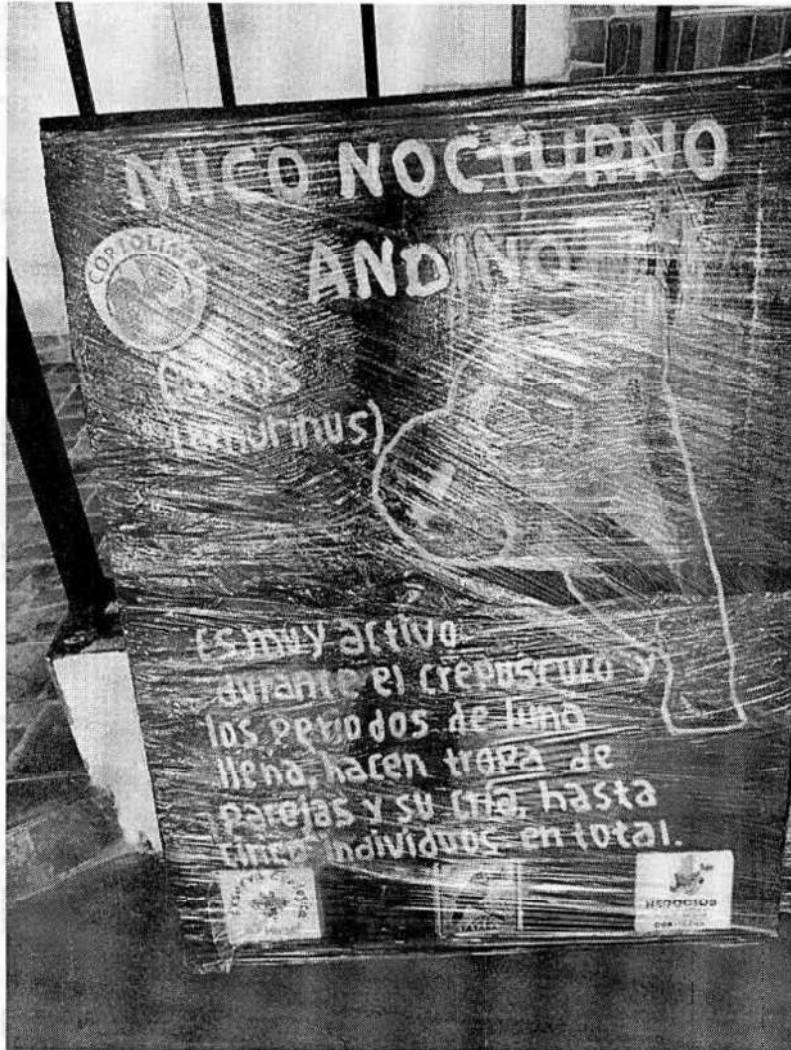 MICO NOCTURNO
ANDINO
CORTOLIMA
lemurinus)
Es muy activo
durante el crepusculo y
los periodos de luna
llena, hacen tropa de
parejas y su cría, hasta
cinco individuos en total.
NEGOCIOS